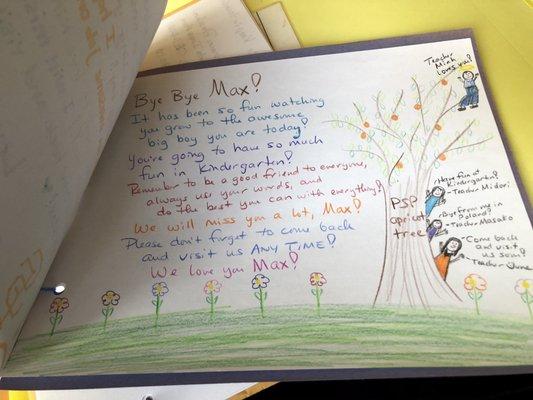 Bye Bye Max!
It has been so fun watching
you grow to the awesome
big boy you are today!
You're going to have so much
fun in Kindergarten!
Remember to be a good friend to everyone,
always use your words, and
do the best you can with everything!
We will miss you a lot, Max!
Please don't forget to come back
and visit us ANY TIME!
We love you Max!
Teacher
Minh
loves you!
PSP
apricot
tree
Have fun at
Kindergarten!
- Teacher Midori
Bye from me in
Poland!
- Teacher Masako
Come back
and visit
us soon!
- Teacher